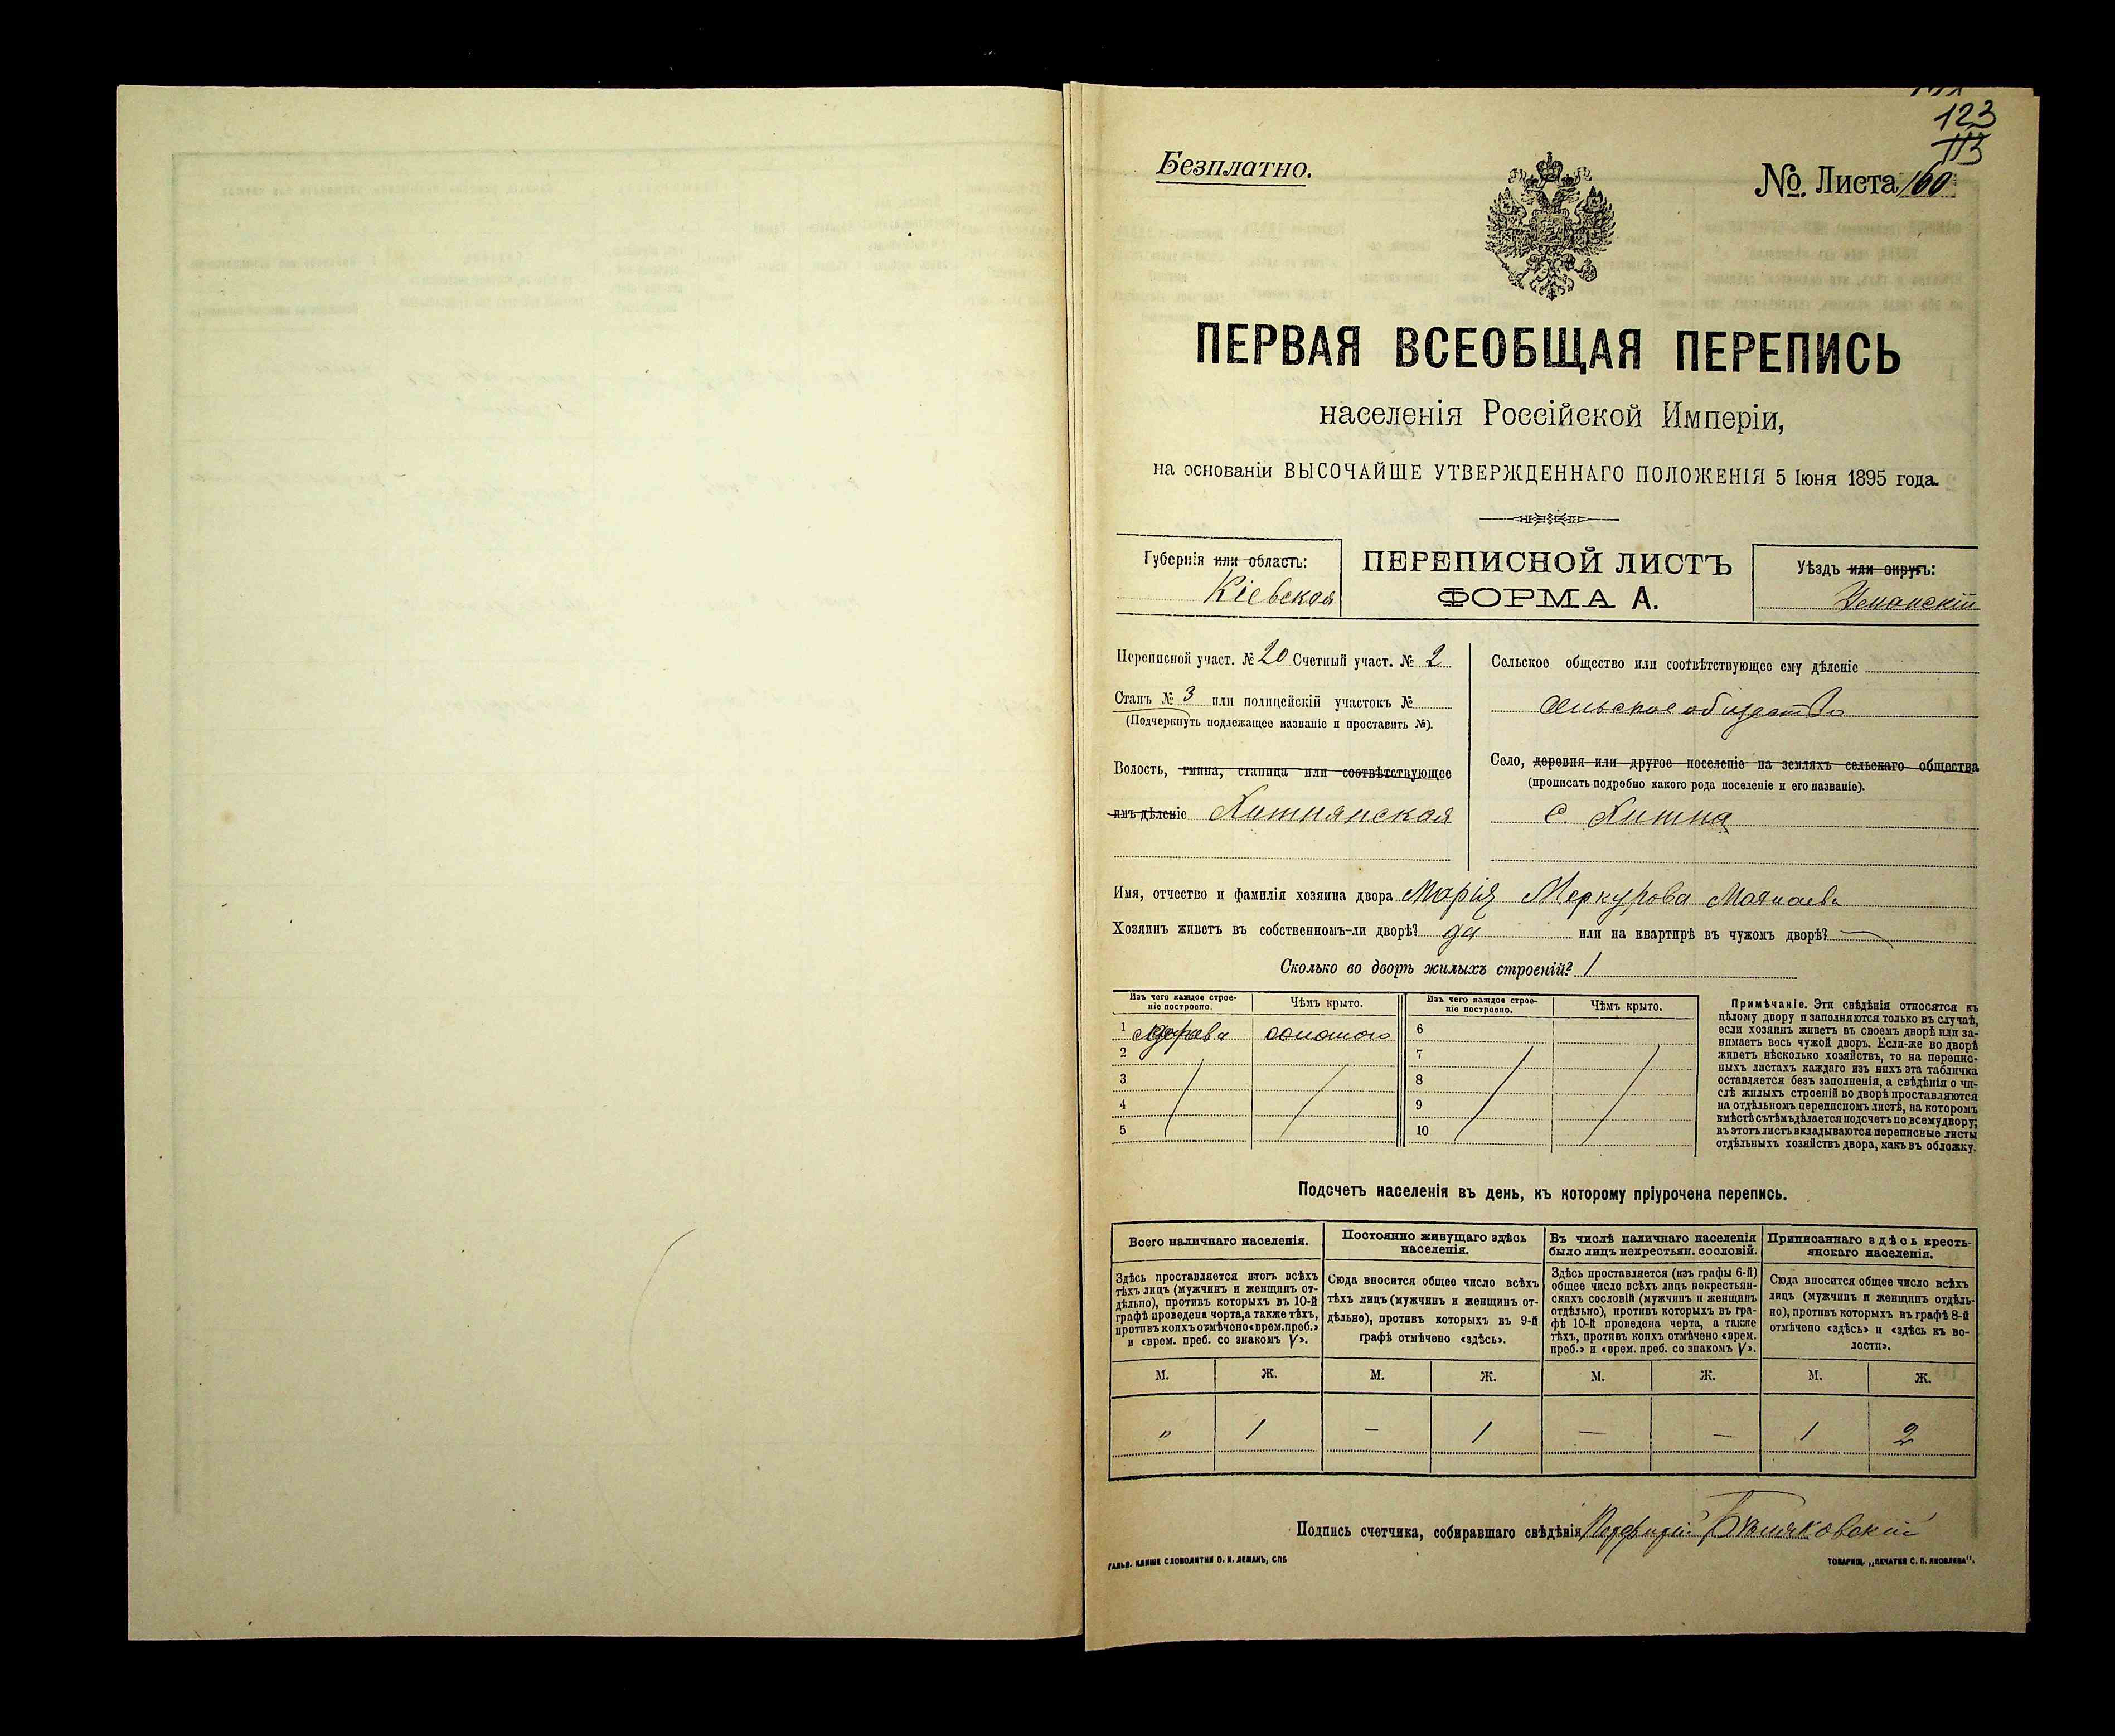 123
Безплатно.
№. Листа 160
ПЕРВАЯ ВСЕОБЩАЯ ПЕРЕПИСЬ
населенія Россійской Имперіи,
на основаніи ВЫСОЧАЙШЕ УТВЕРЖДЕННАГО ПОЛОЖЕНІЯ 5 Іюня 1895 года.
Губернія или область:
Кіевская
ПЕРЕПИСНОЙ ЛИСТЪ
ФОРМА А.
Уѣздъ или округъ:
Уманскій
Переписной участ. № 20 Счетный участ. № 2
Станъ № 3 или полицейскій участокъ №
(Подчеркнуть подлежащее названіе и проставить №).
Волость, гмина, станица или соотвѣтствующее
имъ дѣленіе Хитнянская
Сельское общество или соотвѣтствующее ему дѣленіе
сельское общество
Село, деревня или другое поселеніе на земляхъ сельскаго общества
(прописать подробно какого рода поселеніе и его названіе).
С. Хитна
Имя, отчество и фамилія хозяина двора Марія Меркурова
Хозяинъ живетъ въ собственномъ-ли дворѣ? да или на квартирѣ въ чужомъ дворѣ? —
Сколько во дворѣ жилыхъ строеній? 1
Изъ чего каждое строе-
ніе построено.
Чѣмъ крыто.
Изъ чего каждое строе-
ніе построено.
Чѣмъ крыто.
1 соломою 6
2 7
3 8
4 9
5 10
Примѣчаніе. Эти свѣдѣнія относятся къ
цѣлому двору и заполняются только въ случаѣ,
если хозяинъ живетъ въ своемъ дворѣ или за-
нимаетъ весь чужой дворъ. Если-же во дворѣ
живетъ нѣсколько хозяйствъ, то на перепис-
ныхъ листахъ каждаго изъ нихъ эта табличка
оставляется безъ заполненія, а свѣдѣнія о чи-
слѣ жилыхъ строеній во дворѣ проставляются
на отдѣльномъ переписномъ листѣ, на которомъ
вмѣстѣ съ тѣмъ дѣлается подсчетъ по всему двору;
въ этотъ листъ вкладываются переписные листы
отдѣльныхъ хозяйствъ двора, какъ въ обложку.
Подсчетъ населенія въ день, къ которому пріурочена перепись.
Всего наличнаго населенія.
Здѣсь проставляется итогъ всѣхъ
тѣхъ лицъ (мужчинъ и женщинъ от-
дѣльно), противъ которыхъ въ 10-й
графѣ проведена черта, а также тѣхъ,
противъ коихъ отмѣчено «врем. преб.»
и «врем. преб. со знакомъ V».
Постоянно живущаго здѣсь
населенія.
Сюда вносится общее число всѣхъ
тѣхъ лицъ (мужчинъ и женщинъ от-
дѣльно), противъ которыхъ въ 9-й
графѣ отмѣчено «здѣсь».
Въ числѣ наличнаго населенія
было лицъ некрестьян. сословій.
Здѣсь проставляется (изъ графы 6-й)
общее число всѣхъ лицъ некрестьян-
скихъ сословій (мужчинъ и женщинъ
отдѣльно), противъ которыхъ въ гра-
фѣ 10-й проведена черта, а также
тѣхъ, противъ коихъ отмѣчено «врем.
преб.» и «врем. преб. со знакомъ V».
Приписаннаго здѣсь кресть-
янскаго населенія.
Сюда вносится общее число всѣхъ
лицъ (мужчинъ и женщинъ отдѣль-
но), противъ которыхъ въ графѣ 8-й
отмѣчено «здѣсь» и «здѣсь къ во-
лости».
М. Ж. М. Ж. М. Ж. М. Ж.
" 1 — 1 — — 1 2
Подпись счетчика, собиравшаго свѣдѣнія
ГАЛЬВ. КЛИШЕ СЛОВОЛИТНИ О. И. ЛЕМАНЪ, СПБ
ТОВАРИЩ. „ПЕЧАТНЯ С. П. ЯКОВЛЕВА".